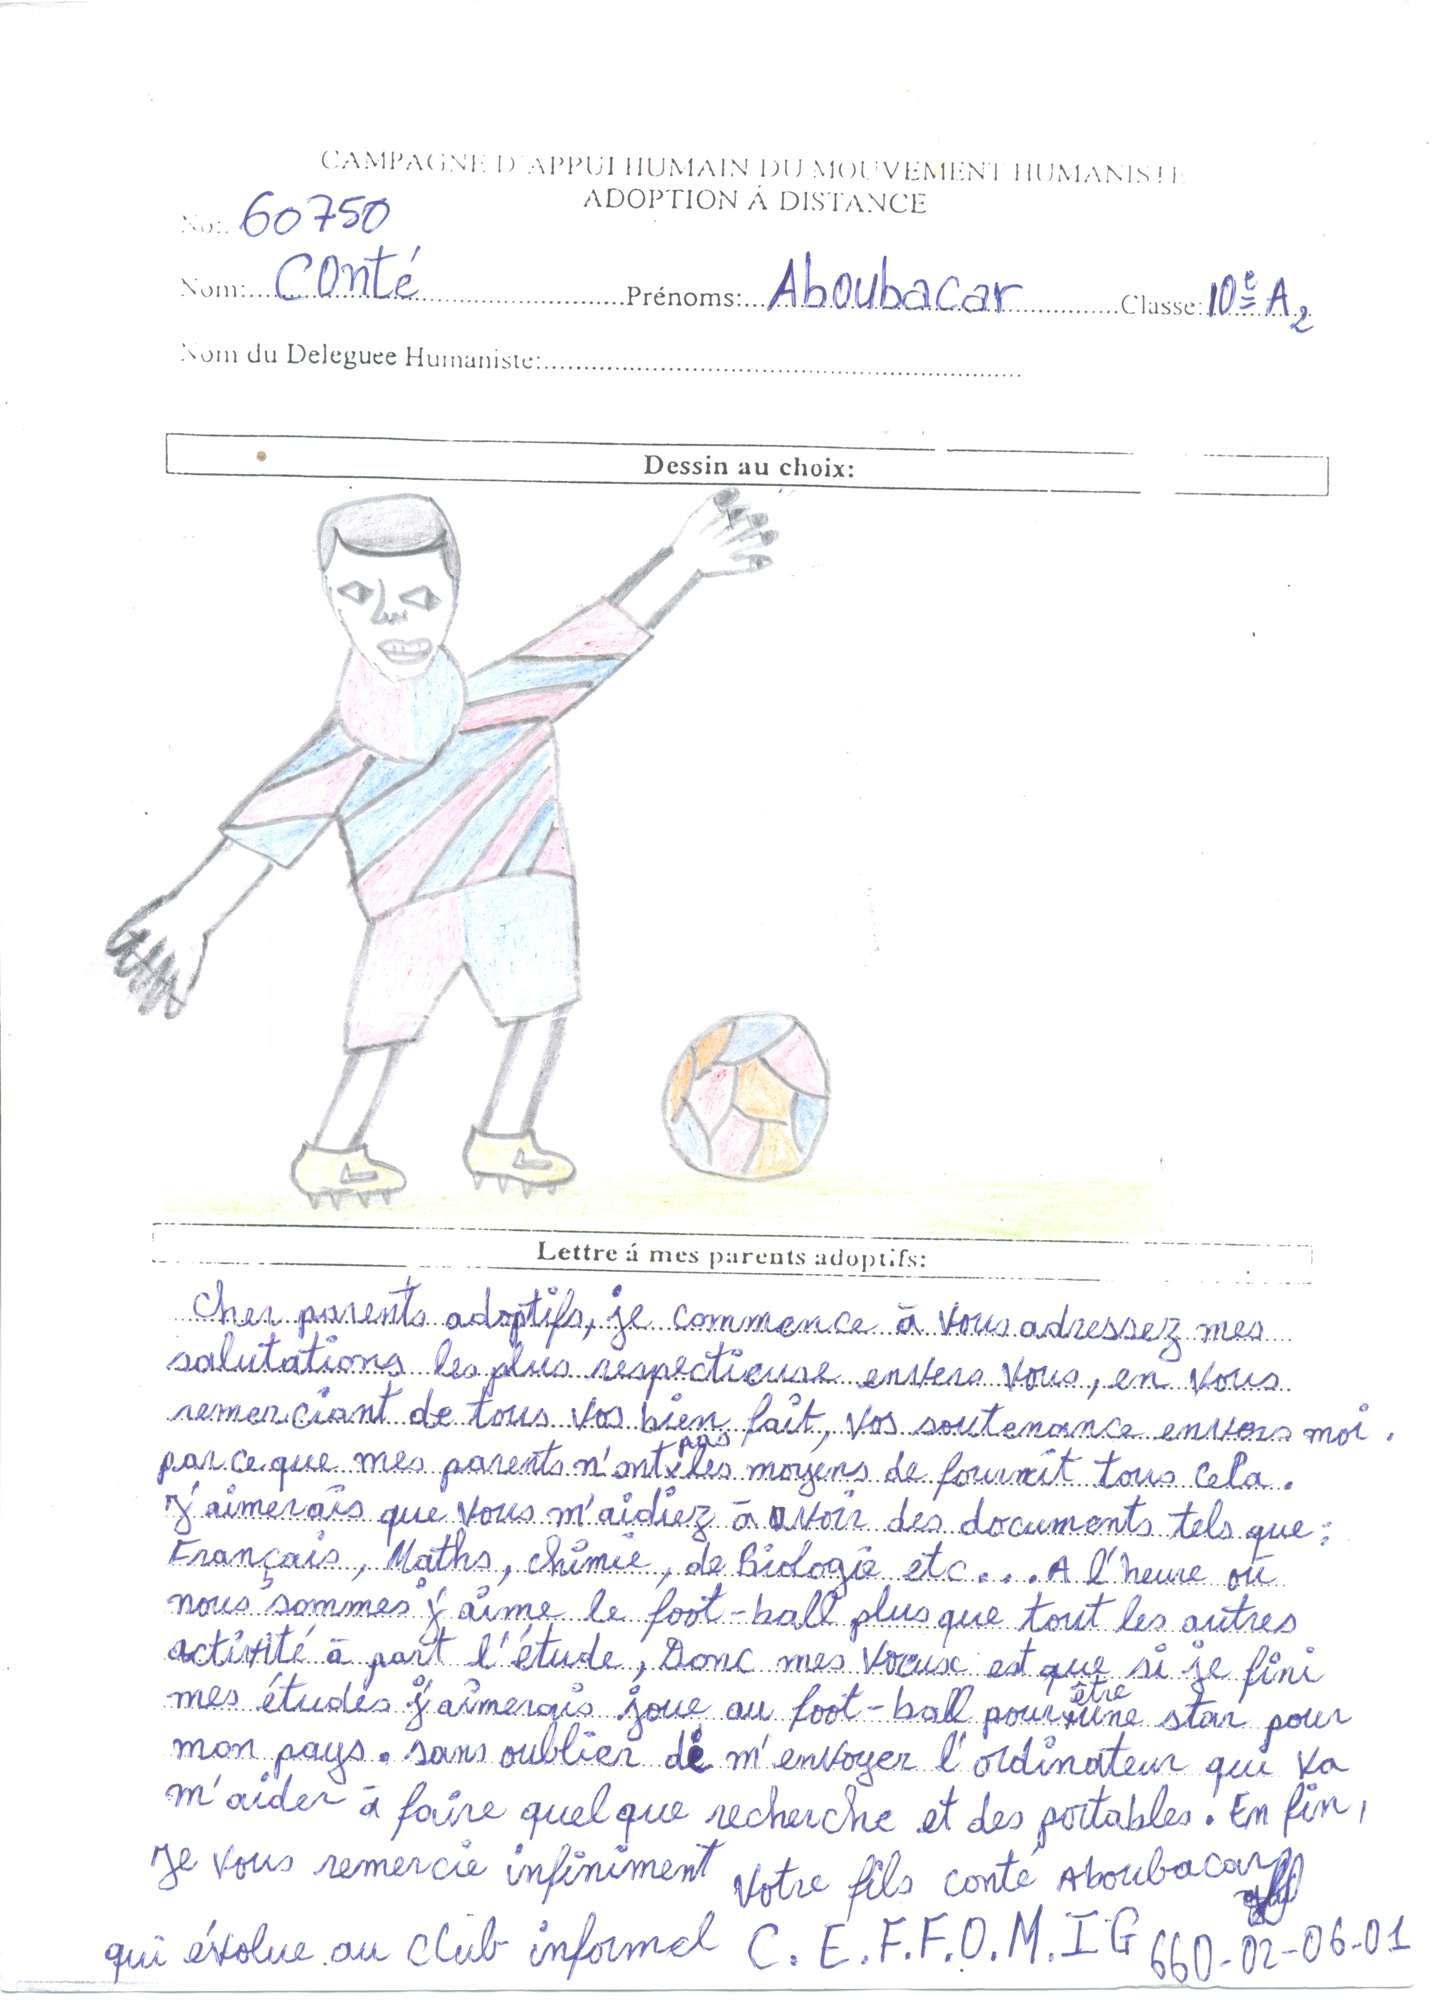 CAMPAGNE D'APPUI HUMAIN DU MOUVEMENT HUMANISTE
ADOPTION Á DISTANCE
No: 60750
Nom: Conté Prénoms: Aboubacar Classe: 10e A2
Nom du Deleguee Humaniste:
Dessin au choix:
Lettre á mes parents adoptifs:
Cher parents adoptifs, je commence à vous adressez mes
salutations les plus respectieuse envers vous, en vous
remerciant de tous vos bien fait, vos soutenance envers moi.
parce que mes parents n'ont pas les moyens de fournit tous cela.
J'aimerais que vous m'aidiez à avoir des documents tels que:
Français, Maths, chimie, de Biologie etc... A l'heure où
nous sommes j'aime le foot-ball plus que tout les autres
activité à part l'étude, Donc mes voeux est que si je fini
mes études j'aimerais joue au foot-ball pour être une star pour
mon pays. sans oublier de m'envoyer l'ordinateur qui va
m'aider à faire quelque recherche et des portables. En fin,
Je vous remercie infiniment votre fils conté Aboubacar
qui évolue au club informel C.E.F.F.O.M.I.G 660-02-06-01